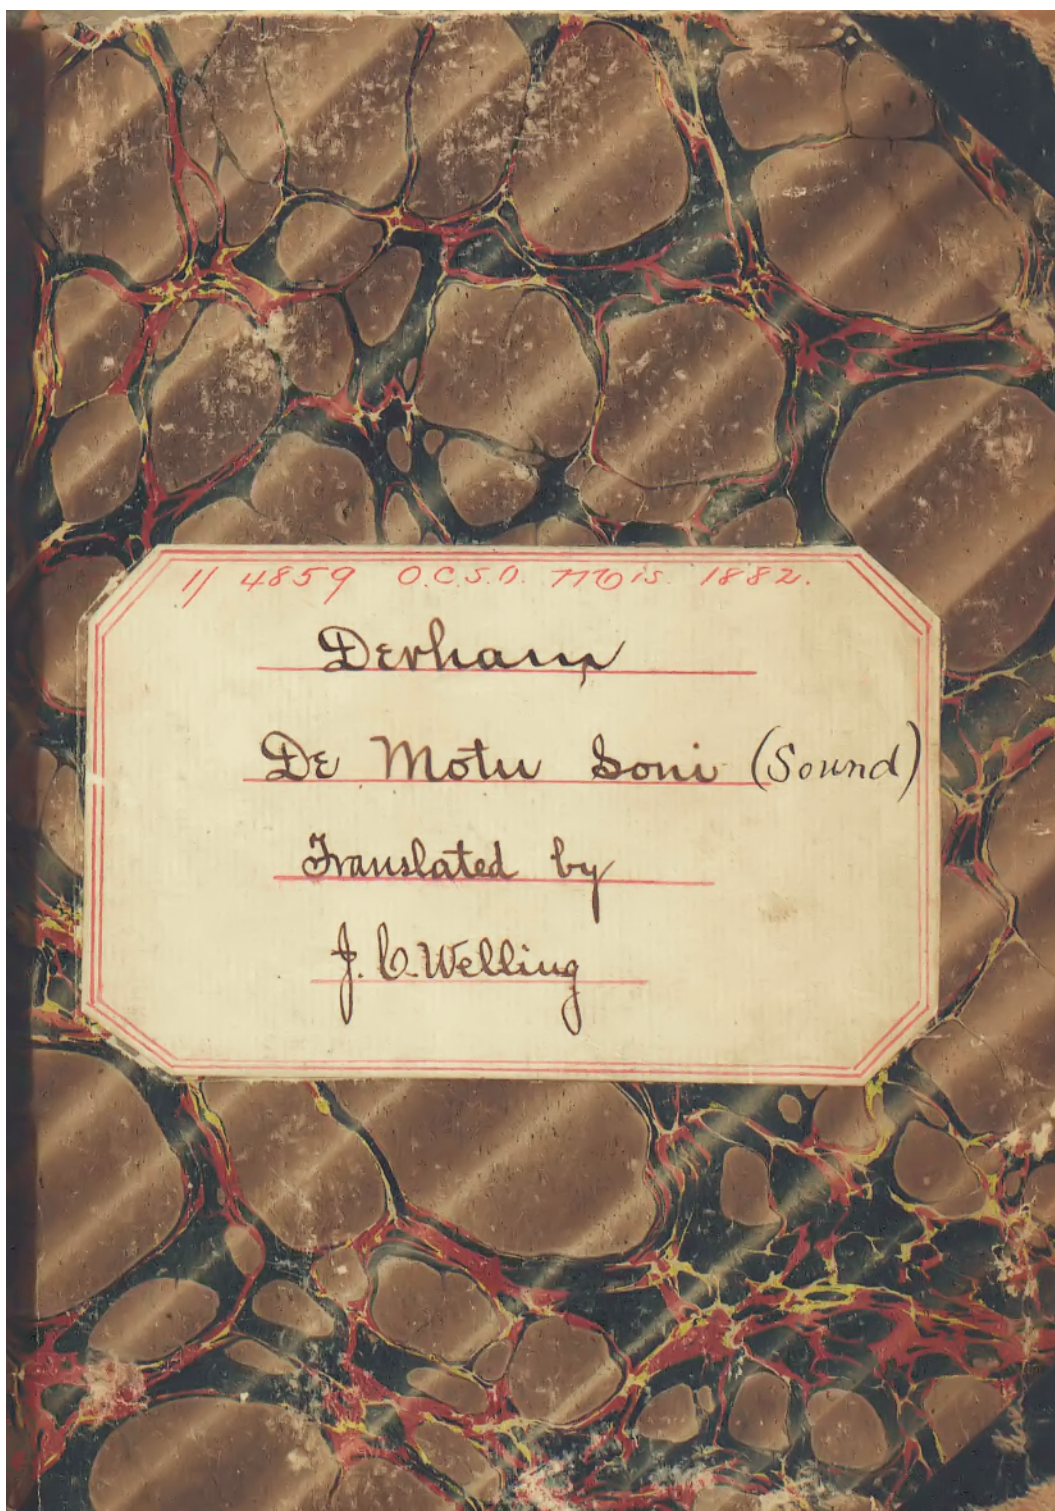 4859 O.C.S.O. 1882.
Derham
De Motu Soni (Sound)
Translated by
J. C. Welling